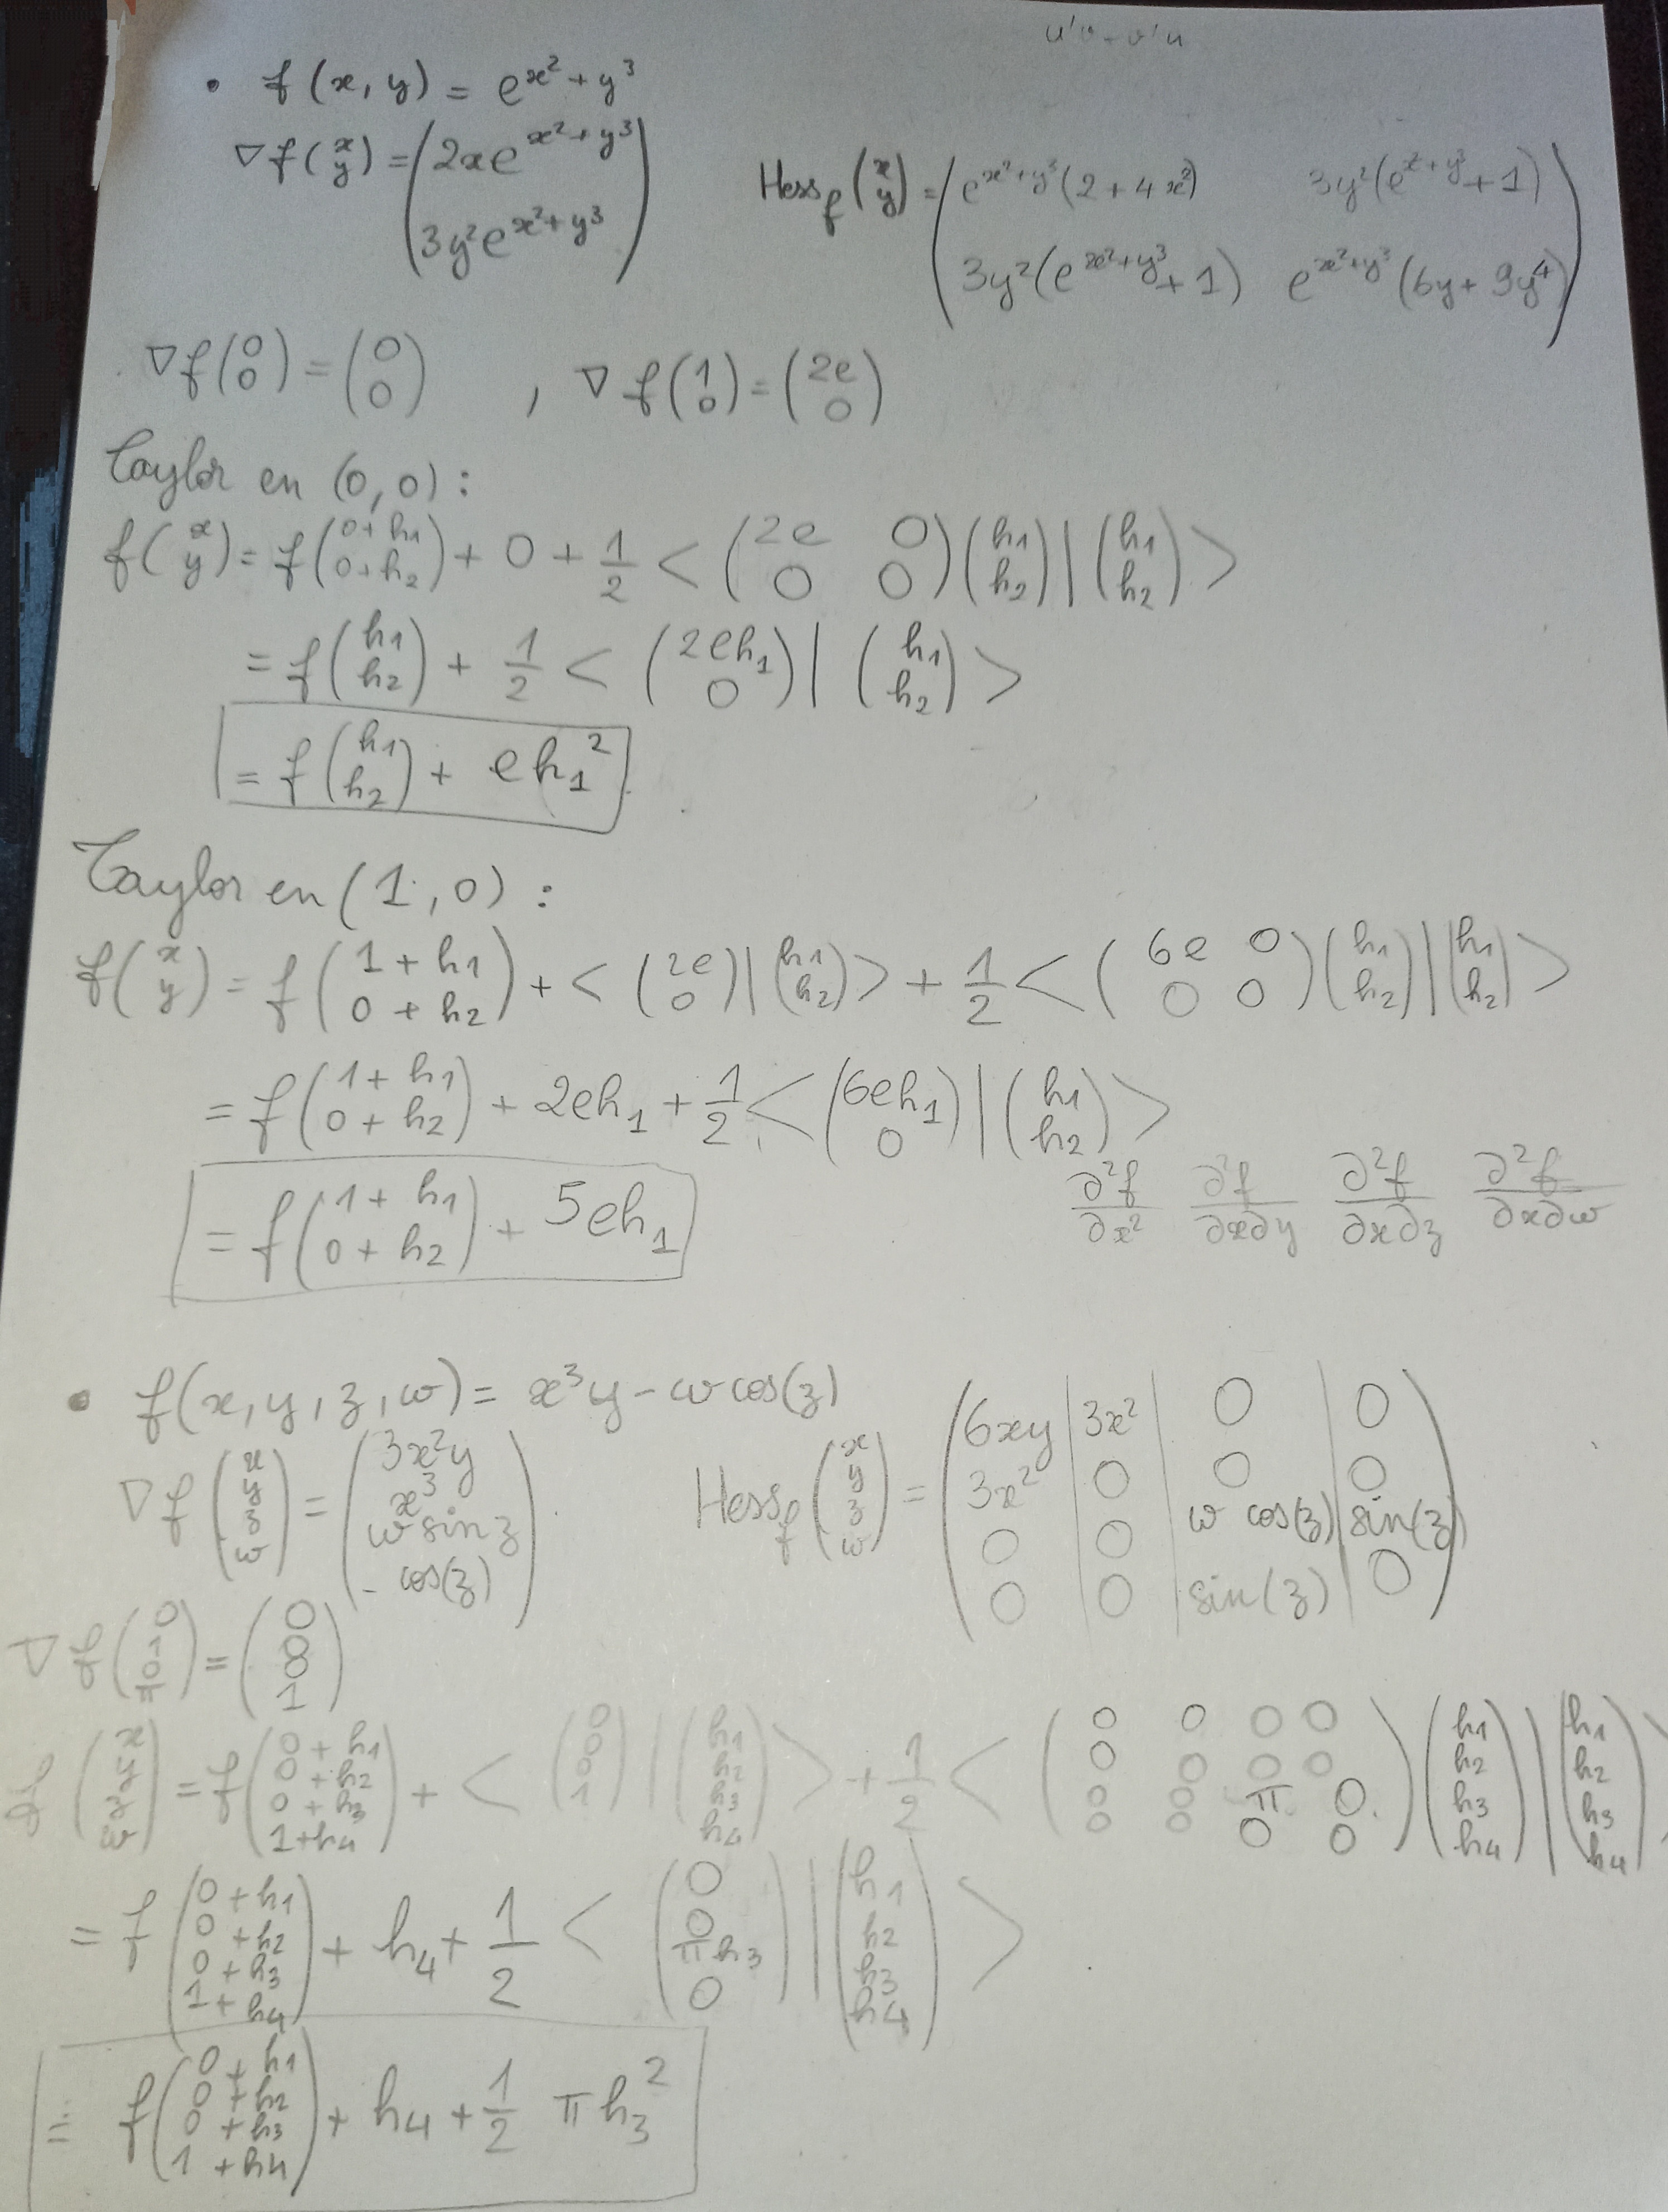 u'v - v'u
• f(x, y) = e^{x² + y³}
∇f(x y) = (2xe^{x² + y³} 3y²e^{x² + y³})
Hess_f(x y) = (e^{x²+y³}(2 + 4x²) 3y²(e^{x²+y³}+1) 3y²(e^{x²+y³}+1) e^{x²+y³}(6y + 9y⁴))
∇f(0 0) = (0 0) , ∇f(1 0) = (2e 0)
Taylor en (0, 0) :
f(x y) = f(0+h₁ 0+h₂) + 0 + 1/2 < (2e 0 0 0)(h₁ h₂) | (h₁ h₂) >
= f(h₁ h₂) + 1/2 < (2eh₁ 0) | (h₁ h₂) >
= f(h₁ h₂) + eh₁²
Taylor en (1, 0) :
f(x y) = f(1 + h₁ 0 + h₂) + < (2e 0) | (h₁ h₂) > + 1/2 < (6e 0 0 0)(h₁ h₂) | (h₁ h₂) >
= f(1 + h₁ 0 + h₂) + 2eh₁ + 1/2 < (6eh₁ 0) | (h₁ h₂) >
∂²f/∂x² ∂²f/∂x∂y ∂²f/∂x∂z ∂²f/∂x∂w
= f(1 + h₁ 0 + h₂) + 5eh₁
• f(x, y, z, w) = x³y - w cos(z)
∇f(x y z w) = (3x²y x³ w sin z - cos(z))
Hess_f(x y z w) = (6xy 3x² 0 0 3x² 0 0 0 0 0 w cos(z) sin(z) 0 0 sin(z) 0)
f(x y z w) = f(0 + h₁ 0 + h₂ 0 + h₃ 1 + h₄) + < (0 0 0 1) | (h₁ h₂ h₃ h₄) > + 1/2 < (0 0 0 0 0 0 0 0 0 0 π 0 0 0 0 0)(h₁ h₂ h₃ h₄) | (h₁ h₂ h₃ h₄) >
= f(0 + h₁ 0 + h₂ 0 + h₃ 1 + h₄) + h₄ + 1/2 < (0 0 πh₃ 0) | (h₁ h₂ h₃ h₄) >
= f(0 + h₁ 0 + h₂ 0 + h₃ 1 + h₄) + h₄ + 1/2 πh₃²